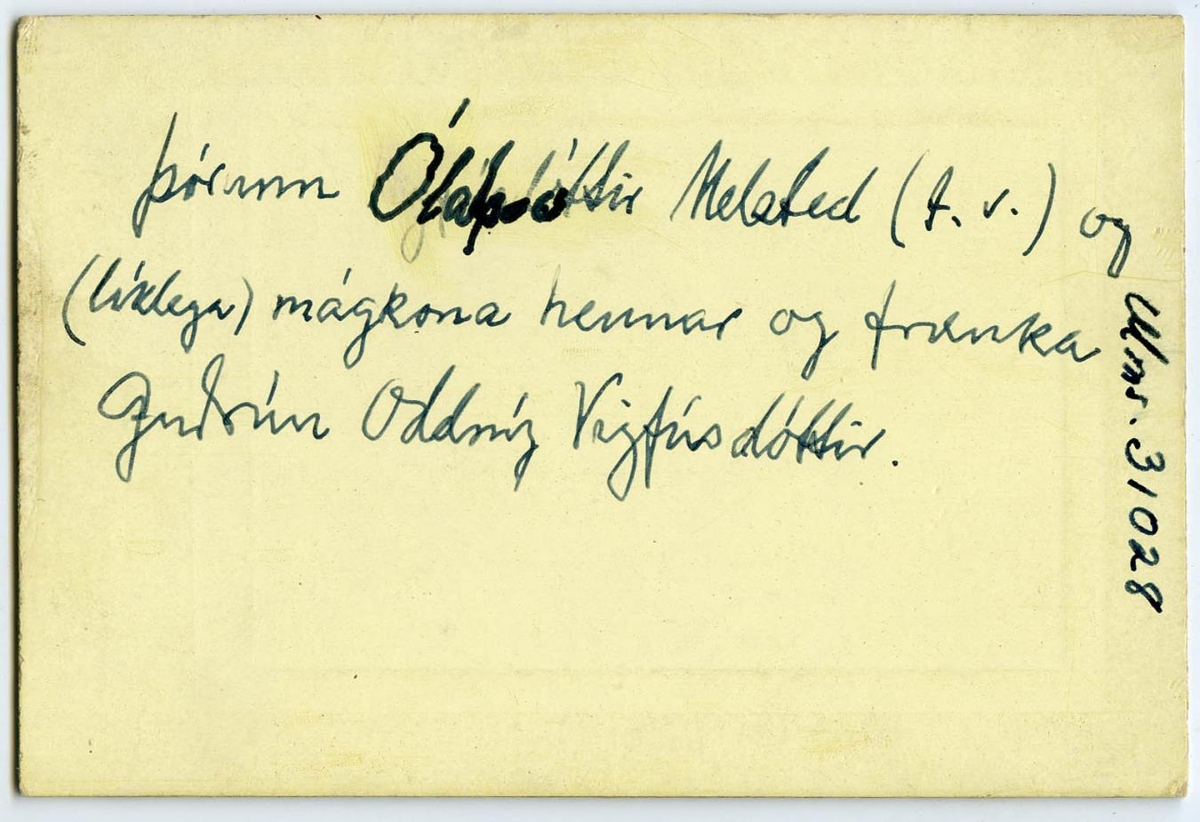 Þórunn Ólafsdóttir Melsted (t. v.) og
(líklega) mágkona hennar og frænka
Guðrún Oddný Vigfúsdóttir.
Mms. 31028